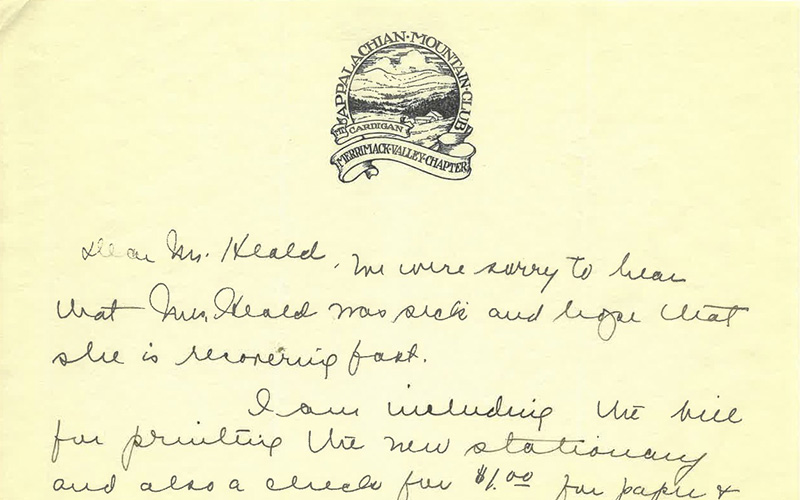 APPALACHIAN·MOUNTAIN·CLUB
MT. CARDIGAN
MERRIMACK·VALLEY·CHAPTER
Dear Mr. Heald, We were sorry to hear
that Mrs. Heald was sick and hope that
she is recovering fast.
I am including the bill
for printing the new stationary
and also a check for $1.00 for paper &